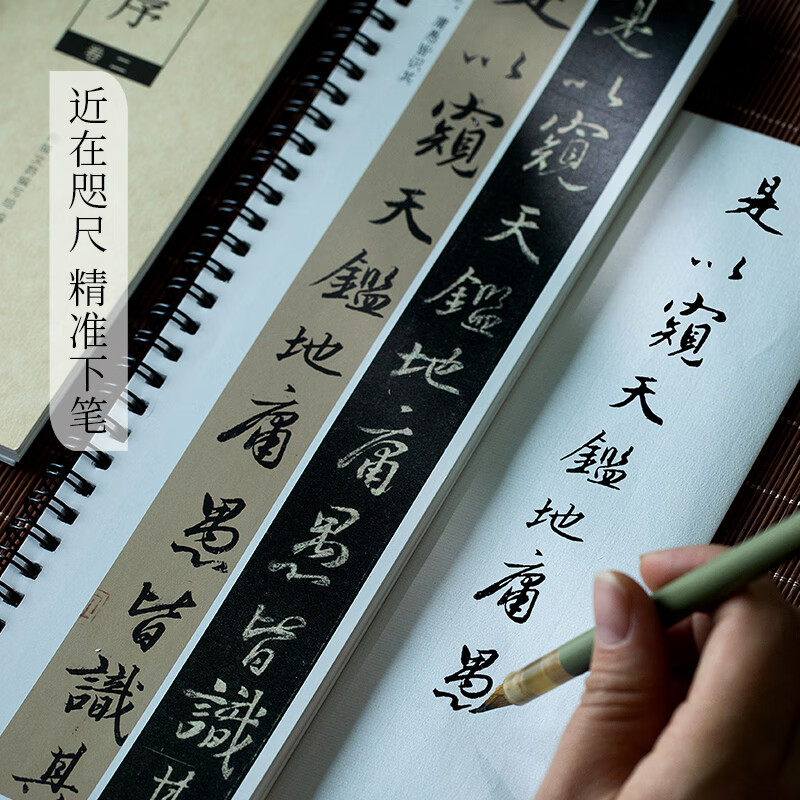 近在咫尺 精准下笔
序
卷二
庸愚皆识其
是以窥天鑑地庸愚皆識其
是以窥天鑑地庸愚皆識其
是以窥天鑑地庸愚